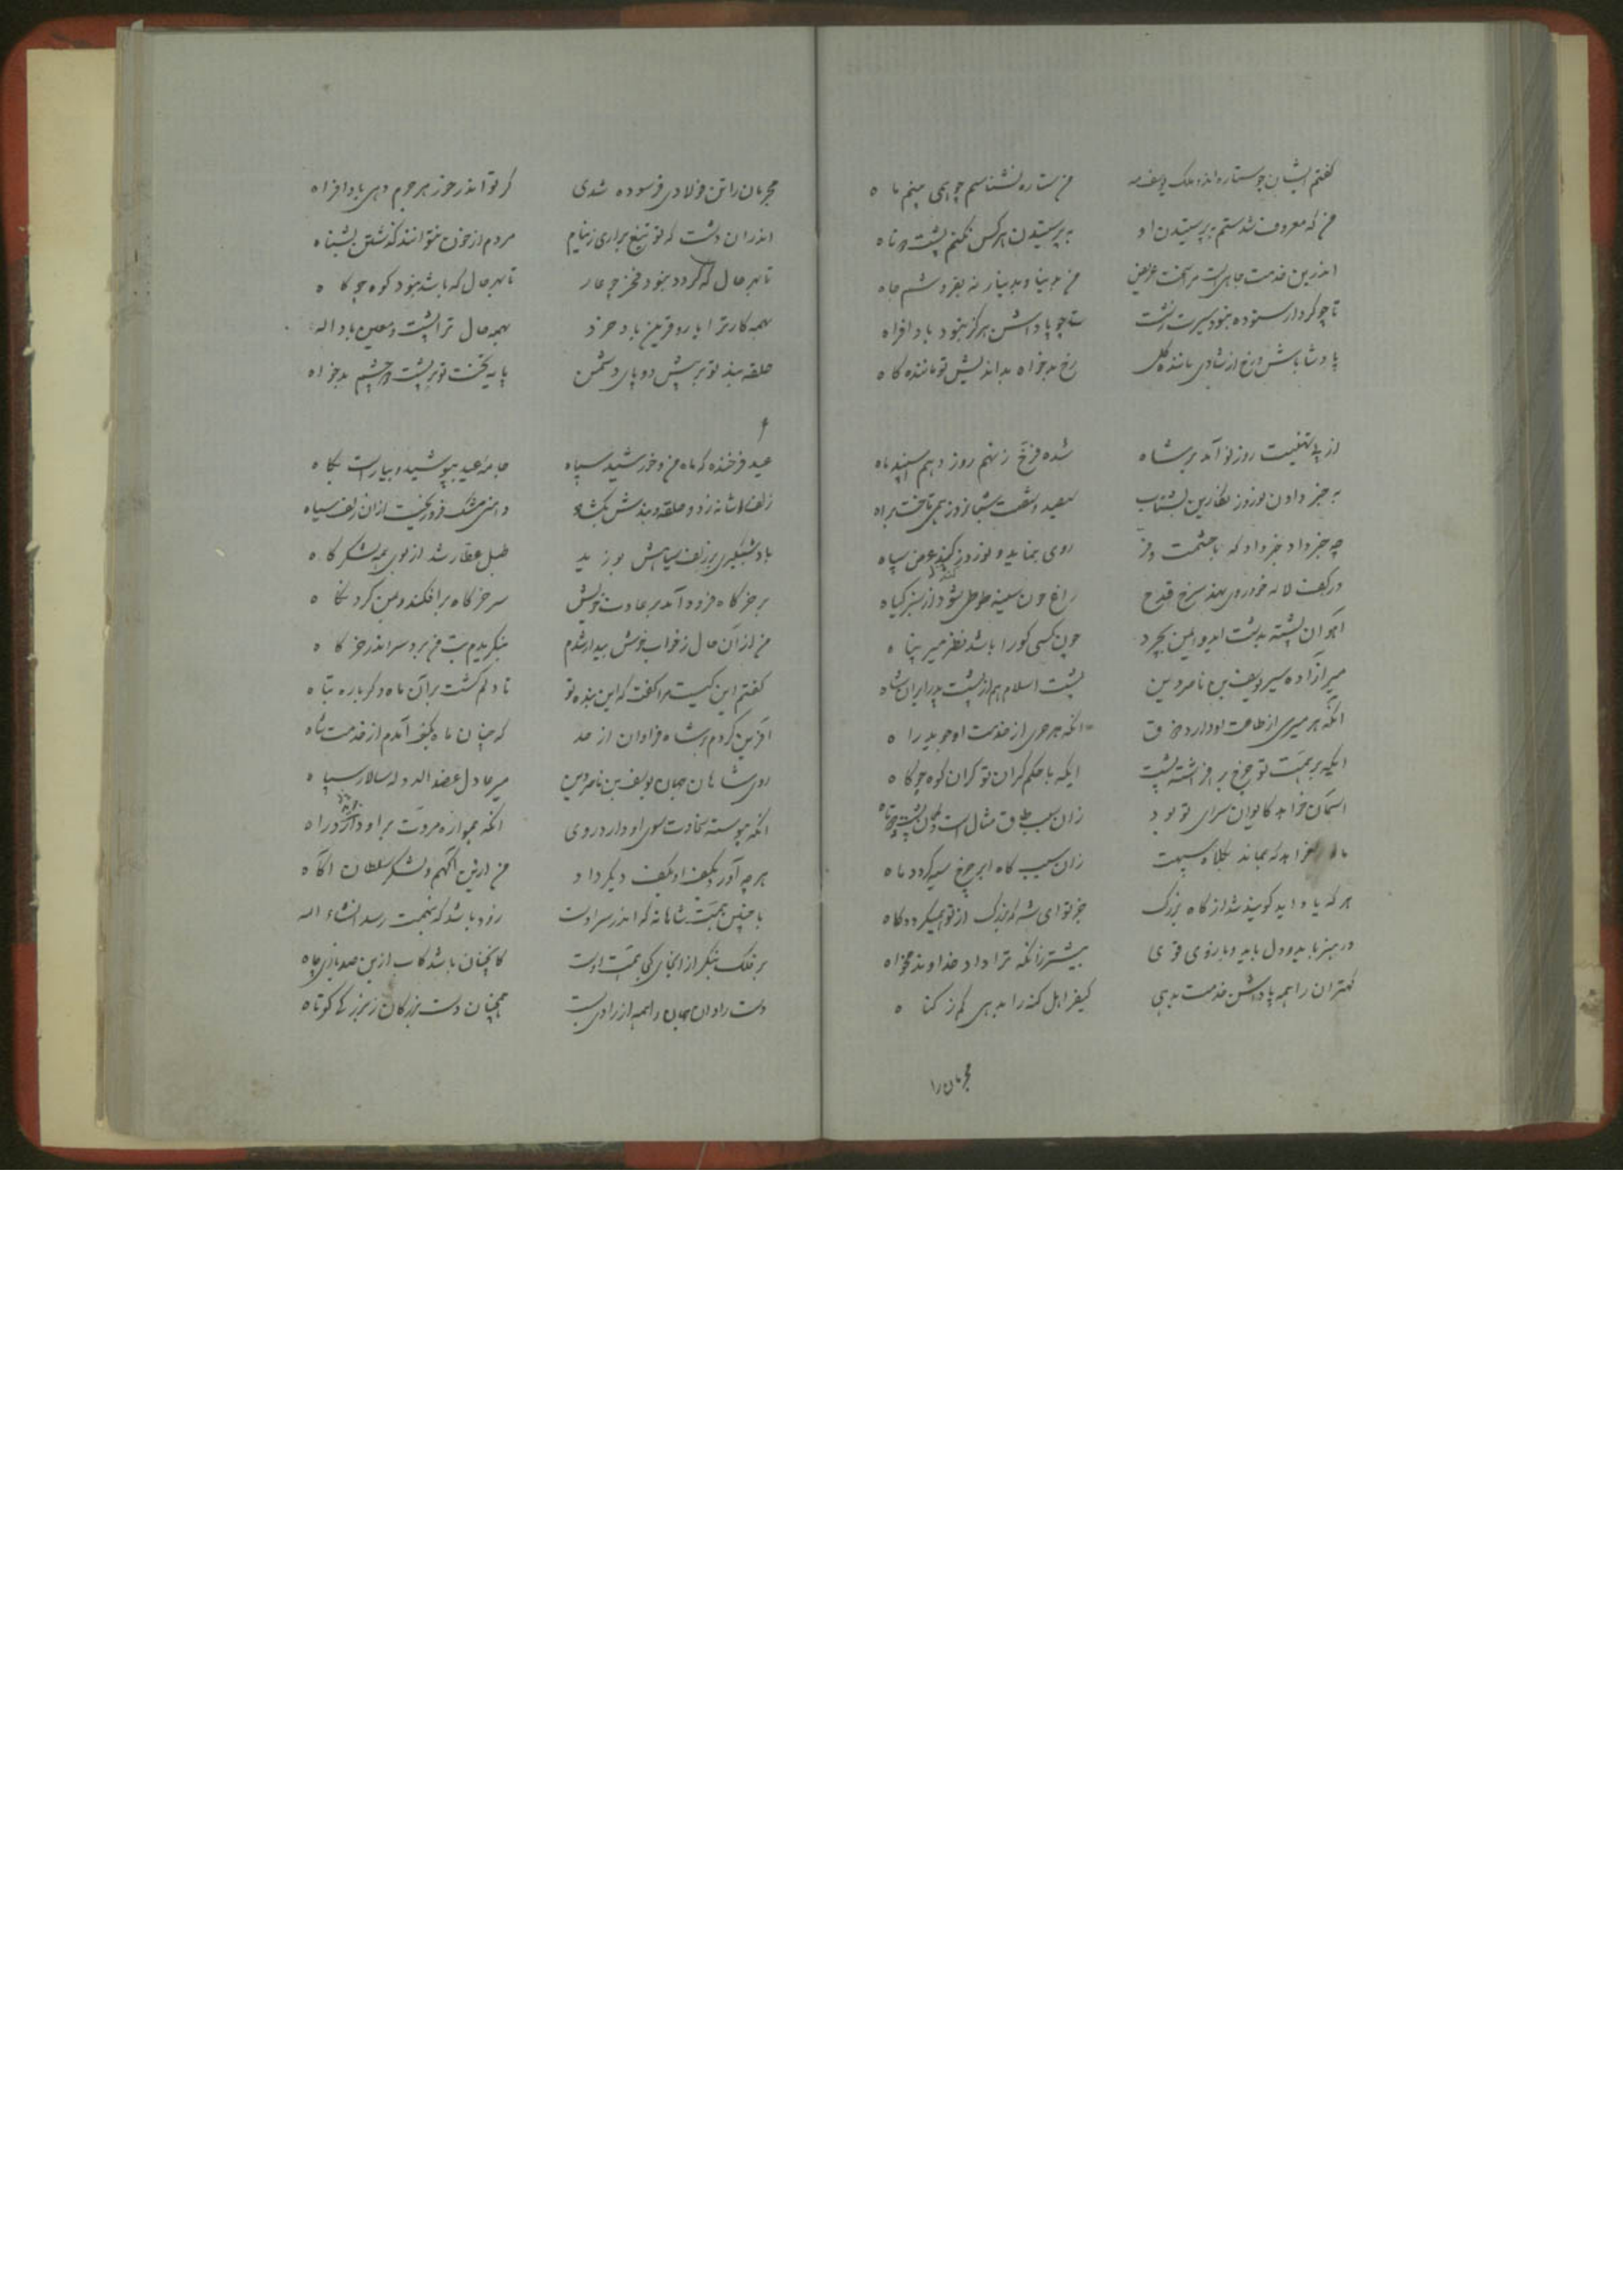 گفتم ایشان چو ستاره اند و ملک یوسف مه من ستاره نشناسم چو همی بینم ماه
من که معروف شدستم به پرستیدن او به پرستیدن هر کس نکنم پشت دوتاه
اندرین خدمت جاهیست مرا سخت عریض من بدنیا و بدینار نه بفروشم جاه
تا چو کردار ستوده نبود سیرت زشت تا چو پاداشن هرگز نبود بادافراه
پادشا باش و رخ از شادی مانند گل رخ بدخواه بداندیش تو مانند کاه
از پی تهنیت روز نو آمد بر شاه شده فرخ زنهم روز دهم اسپند ماه
به خبر دادن نوروز نگارین بشتاب سیصد و شصت شبانروز همی تاخت براه
چه خبر داد خبر داد که با حشمت و فر روی بنماید و نوروز کند عرض سپاه
در کف لاله خودروی نهد سرخ قدح راغ چون سینه طوطی شود از سبز گیاه
آهوان پشته بدشت آید و ایمن بچرد چون کسی کو را باشد نظر میر پناه
میر آزاده سیر یوسف بن ناصر دین پشت اسلام هم از پشت پدر ایران شاه
آنکه هر میری از طاعت او دارد آنکه هر حری از خدمت او جوید راه
ایکه بر همت تو چرخ بر افراشته پشت ایکه با حلم گران تو گران کوه چو کاه
آسمان خواهد کایوان سرای تو بود زان سبب طاق مثال است و
ماه خواهد که بماند بکلاه سیهت زان سبب گاه ابر چرخ سیه گردد ماه
هر که یاد آید گویند شد از گاه بزرگ جز تو ای شه که بزرگ از تو همیگردد گاه
در هنر باید و دل باید و بازوی قوی بیشتر زانکه ترا داد خداوند مخواه
کهتران را همه پاداشن خدمت بدهی کیفر اهل گنه را بدهی کم ز گناه
مجرمان را
مجرمان را تن فولادی فرسوده شدی گر تو اندر خور هر جرم دهی بادافراه
اندران دشت که تو تیغ برآری ز نیام مردم از خون نتوانند گذشتن بشناه
تا بهر حال که گردد نبود فخر چو عار تا بهر حال که باشد نبود کوه چو کاه
بهمه کار ترا یار و قرین باد خرد بهمه حال ترا پشت و معین باد اله
حلقه بند تو بر پیش دو پای دشمن پایه تخت تو بر پشت و چشم بدخواه
و
عید فرخنده که ماه من و خورشید سپاه جامه عید بپوشید و بیاراست پگاه
زلف را شانه زد و حلقه و بندش بگشاد دامنی مشک فرو ریخت ازان زلف سیاه
باد شبگیری بر زلف سیاهش بوزید طبل عطار شد از بوی همه لشکرگاه
بر خرگاه فرود آمد بر عادت خویش سر خرگاه برافکند و بمن کرد نگاه
من از آن حال ز خواب خوش بیدار شدم بنگریدم بت من برد سر اندر خرگاه
گفتم این کیست مرا گفت که این بنده تو تا دلم گشت بر آن ماه دگرباره تباه
آفرین کردم بر شاه فراوان از حد که چنان ماه بکف آمدم از خدمت شاه
روی شاهان جهان یوسف بن ناصر دین میر عادل عضد الدوله سالار سپاه
آنکه پیوسته سخاوت سوی او دارد روی آنکه همواره مروت بر او دارد راه
هر چه آورد بکف او بکف دیگر داد من ازین آگهم و لشکر سلطان آگاه
با چنین همت شاهانه که اندر سر اوست زود باشد که بنهمت رسد انشاء الله
بر فلک بنگر از انجای کجا همت اوست کانچنان باشد کاب ازین صد بازی چاه
دست رادان جهان را همه از رادی بست همچنان دست بزرگان ز بزرگی کوتاه